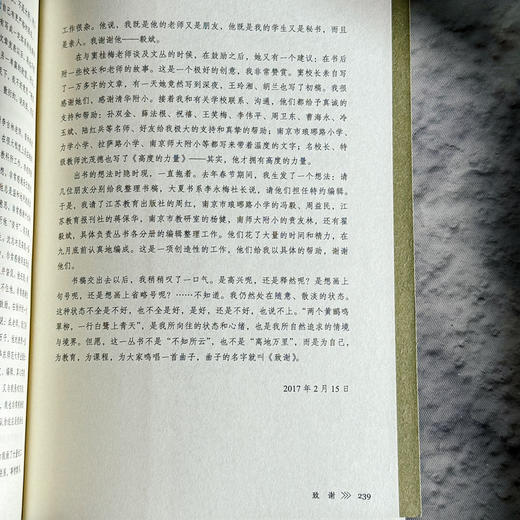 工作很杂。他说，我既是他的老师又是朋友，他既是我的学生又是秘书，而且
是亲人。我谢谢他——毅斌。
在与窦桂梅老师谈及文丛的时候，在鼓励之后，她又有一个建议：在书后
附一些校长和老师的故事。这是一个极好的创意，我非常赞赏。窦校长亲自写
了一万多字的文章，有一天她竟然写到深夜，王玲湘、胡兰也写了初稿。我很
感谢她们，感谢清华附小。接着我和有关学校联系、沟通，他们都给予真诚的
支持和帮助：孙双金、薛法根、祝禧、王笑梅、李伟平、周卫东、曹海永、冷
玉斌、陆红兵等名师、好友给我极大的支持和真挚的帮助；南京市琅琊路小学、
力学小学、拉萨路小学、南京师大附小等都写来带着温度的文字；名校长、特
级教师沈茂德也写了《高度的力量》——其实，他才拥有高度的力量。
出书的想法时隐时现，一直拖着。去年春节期间，我生发了一个想法：请
几位朋友分别给我整理书稿，大夏书系李永梅社长说，请他们担任特约编辑。
于是，我请了江苏教育出版社的周红，南京市琅琊路小学的冯毅、周益民，江
苏教育报刊社的蒋保华，南京市教研室的杨健，南师大附小的贲友林，还有翟
毅斌，具体负责丛书各分册的编辑整理工作。他们花了大量的时间和精力，在
九月底前认真地编成。这是一项创造性的工作，他们给我以具体的帮助，谢谢
他们。
书稿交出去以后，我稍稍叹了一口气。是高兴呢，还是释然呢？是想画上
句号呢，还是想画上省略号呢？……不知道。我仍然处在随意、散淡的状态。
这种状态不全是不好，也不全是好，是好，还是不好，也说不上。“两个黄鹂鸣
翠柳，一行白鹭上青天”，是我所向往的状态和心绪，也是我所自然追求的情境
与境界。但愿，这一丛书不是“不知所云”，也不是“离地万里”，而是为自己，
为教育，为课程，为大家鸣唱一首曲子，曲子的名字就叫《致谢》。
2017 年 2 月 15 日
致 谢 >>> 239